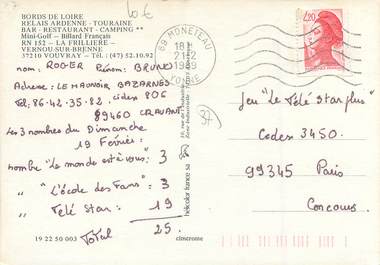 BORDS DE LOIRE
RELAIS ARDENNE - TOURAINE
BAR - RESTAURANT - CAMPING **
Mini-Golf — Billard Français
RN 152 — LA FRILLIERE
VERNOU-SUR-BRENNE
37210 VOUVRAY — Tél. : (47) 52.10.92
10€
nom: ROGER Prénom: BRUNO
Adresse: LE MANOIR BAZARNES
Tél: 86.42.35.82. cidex 806
89460 CRAVANT
Les 3 nombres du Dimanche
19 Février:
nombre "Le monde est à vous": 3
" "L'école des Fans": 3
" Télé Star: 19
Total 25.
19 22 50 003
cimcrome
hélicolor france sa
89 MONETEAU
18H
21-2
1989
YONNE
2,20
37
Jeu "Le Télé Star plus"
Cedex 3450.
99345 Paris
Concours